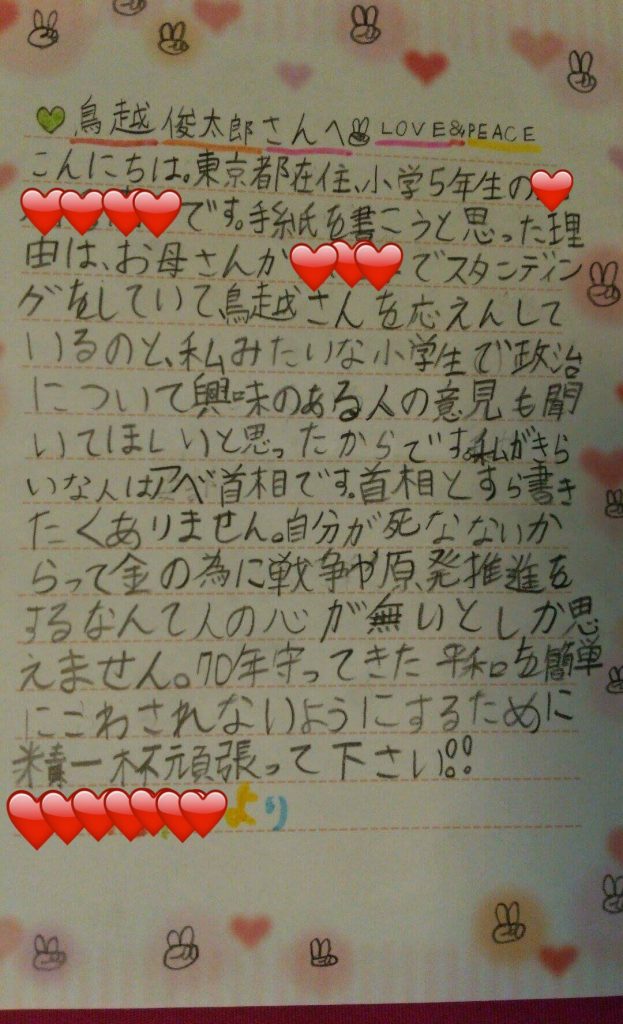 鳥越俊太郎さんへ LOVE&PEACE
こんにちは。東京都在住、小学5年生の
です。手紙を書こうと思った理
由は、お母さんが でスタンディン
グをしていて、鳥越さんを応えんして
いるのと、私みたいな小学生で政治
について興味のある人の意見も聞
いてほしいと思ったからです。私がきら
いな人はアベ首相です。首相とすら書き
たくありません。自分が死なないか
らって金の為に戦争や原発推進を
するなんて人の心が無いとしか思
えません。70年守ってきた平和を簡単
にこわされないようにするために
精一杯頑張って下さい!!
より